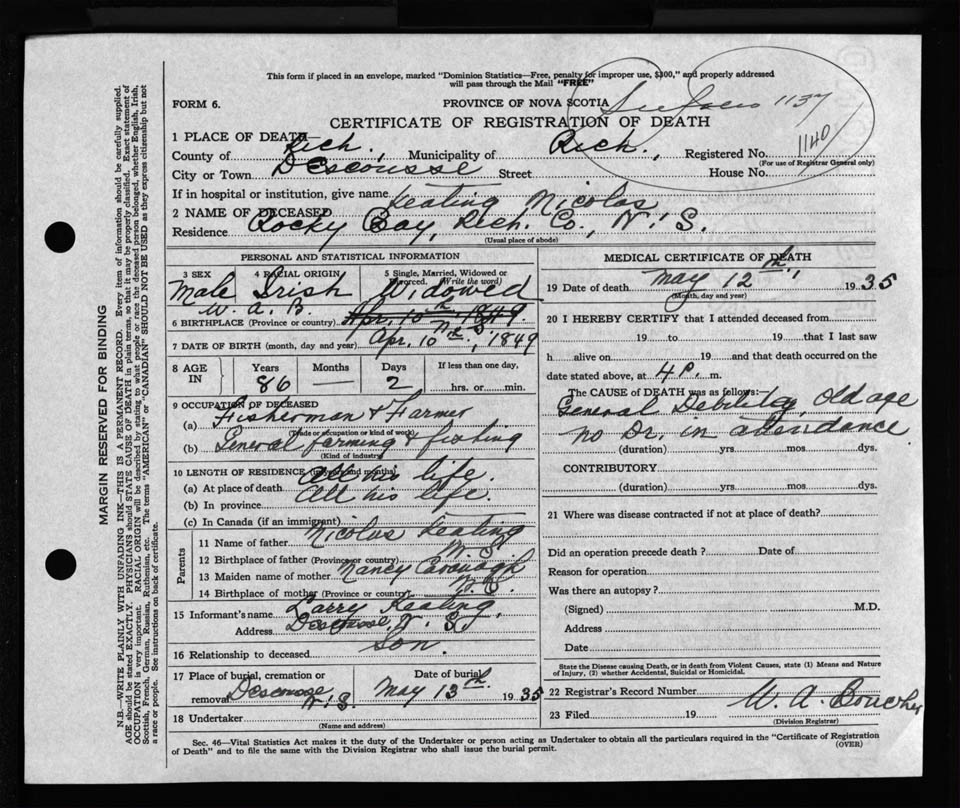 This form if placed in an envelope, marked "Dominion Statistics—Free, penalty for improper use, $300," and properly addressed
will pass through the Mail "FREE"
FORM 6.
PROVINCE OF NOVA SCOTIA
1137
CERTIFICATE OF REGISTRATION OF DEATH
1 PLACE OF DEATH—
County of Rich., Municipality of Rich., Registered No. 1140
(For use of Registrar General only)
City or Town Descousse Street House No.
If in hospital or institution, give name
2 NAME OF DECEASED Keating Nicolas
Residence Rocky Bay, Rich. Co., N.S.
(Usual place of abode)
PERSONAL AND STATISTICAL INFORMATION
3 SEX 4 RACIAL ORIGIN 5 Single, Married, Widowed or Divorced. (Write the word)
Male Irish Widowed
W. A. B.
6 BIRTHPLACE (Province or country) Apr. 10th, 1849.
N.S.
7 DATE OF BIRTH (month, day and year) Apr. 10th., 1849
8 AGE IN Years Months Days If less than one day,
86 — 2 hrs. or min.
9 OCCUPATION OF DECEASED
(a) Fisherman & Farmer
(Trade or occupation or kind of work)
(b) General farming & fishing
(Kind of industry)
10 LENGTH OF RESIDENCE (in years and months)
(a) At place of death All his life.
(b) In province All his life.
(c) In Canada (if an immigrant)
Parents
11 Name of father Nicolas Keating
12 Birthplace of father (Province or country)
13 Maiden name of mother Nancy Cavanagh
14 Birthplace of mother (Province or country)
15 Informant's name Larry Keating.
Address Descousse, N. S.
16 Relationship to deceased Son.
17 Place of burial, cremation or removal Date of burial
Descousse N.S. May 13th 1935
18 Undertaker
(Name and address)
MEDICAL CERTIFICATE OF DEATH
19 Date of death May 12th., 1935
(Month, day and year)
20 I HEREBY CERTIFY that I attended deceased from
19 to 19 that I last saw
h alive on 19 and that death occurred on the
date stated above, at 4 P. m.
The CAUSE OF DEATH was as follows:
General Debility, old age
no Dr. in attendance.
(duration) yrs. mos. dys.
CONTRIBUTORY
(duration) yrs. mos. dys.
21 Where was disease contracted if not at place of death?
Did an operation precede death? Date of
Reason for operation
Was there an autopsy?
(Signed) M.D.
Address
Date
State the Disease causing Death, or in death from Violent Causes, state (1) Means and Nature
of Injury, (2) whether Accidental, Suicidal or Homicidal.
22 Registrar's Record Number
23 Filed 19 W. A. Boucher
(Division Registrar)
Sec. 46—Vital Statistics Act makes it the duty of the Undertaker or person acting as Undertaker to obtain all the particulars required in the "Certificate of Registration
of Death" and to file the same with the Division Registrar who shall issue the burial permit. (OVER)
MARGIN RESERVED FOR BINDING
N.B.—WRITE PLAINLY WITH UNFADING INK—THIS IS A PERMANENT RECORD. Every item of information should be carefully supplied.
AGE should be stated EXACTLY. PHYSICIANS should STATE CAUSE OF DEATH in plain terms, so that it may be properly classified. Exact statement of
OCCUPATION is very important. RACIAL ORIGIN will be described by stating to what people or race the deceased person belonged, whether English, Irish,
Scottish, French, German, Russian, Ruthenian, etc. The terms "AMERICAN" or "CANADIAN" SHOULD NOT BE USED as they express citizenship but not
a race or people. See instructions on back of certificate.